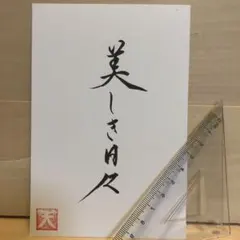 美しき日々
天